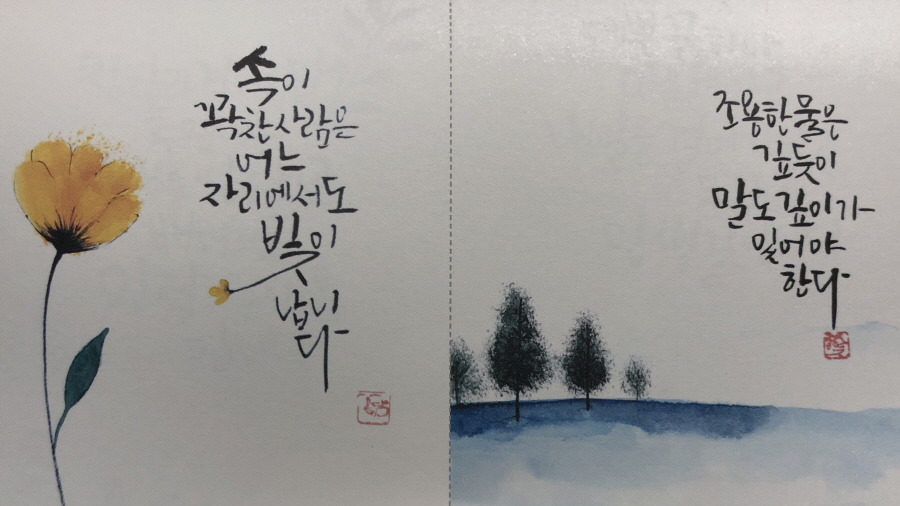 속이
꽉찬사람은
어느
자리에서도
빛이
납니
다
조용한물은
깊듯이
말도깊이가
있어야
한다